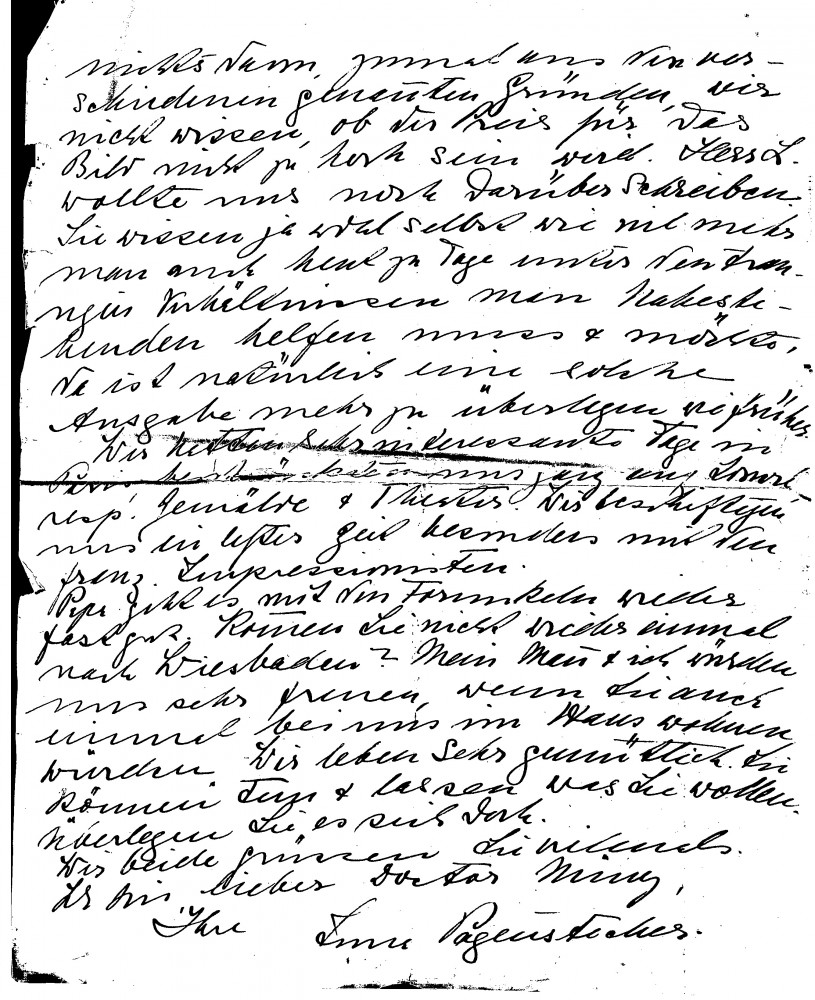 nichts davon, zumal aus den ver-
schiedenen genannten Gründen, wir
nicht wissen, ob der Preis für das
Bild nicht zu hoch sein wird. Herr L.
wollte uns noch darüber schreiben.
Sie wissen ja wohl selbst wie viel mehr
man auch heut zu Tage unter den trau-
rigen Verhältnissen man Naheste-
henden helfen muss & möchte,
da ist natürlich eine solche
Ausgabe mehr zu überlegen wie früher.
Wir hatten sehr interessante Tage in
Paris uns ganz
resp. Gemälde & Theater. Wir beschäftigen
uns in letzter Zeit besonders mit den
franz. Impressionisten.
Papa geht es mit den Forunkeln wieder
fast gut. Kom̅en Sie nicht wieder einmal
nach Wiesbaden? Mein Man̅ & ich würden
uns sehr freuen, wenn Sie auch
einmal bei uns im Haus wohnen
würden. Wir leben sehr gemütlich. Sie
können tun & lassen was Sie wollen.
Überlegen Sie es sich doch.
Wir beide grüssen Sie vielmals.
lieber Doctor
Ihre Pagenstecher.